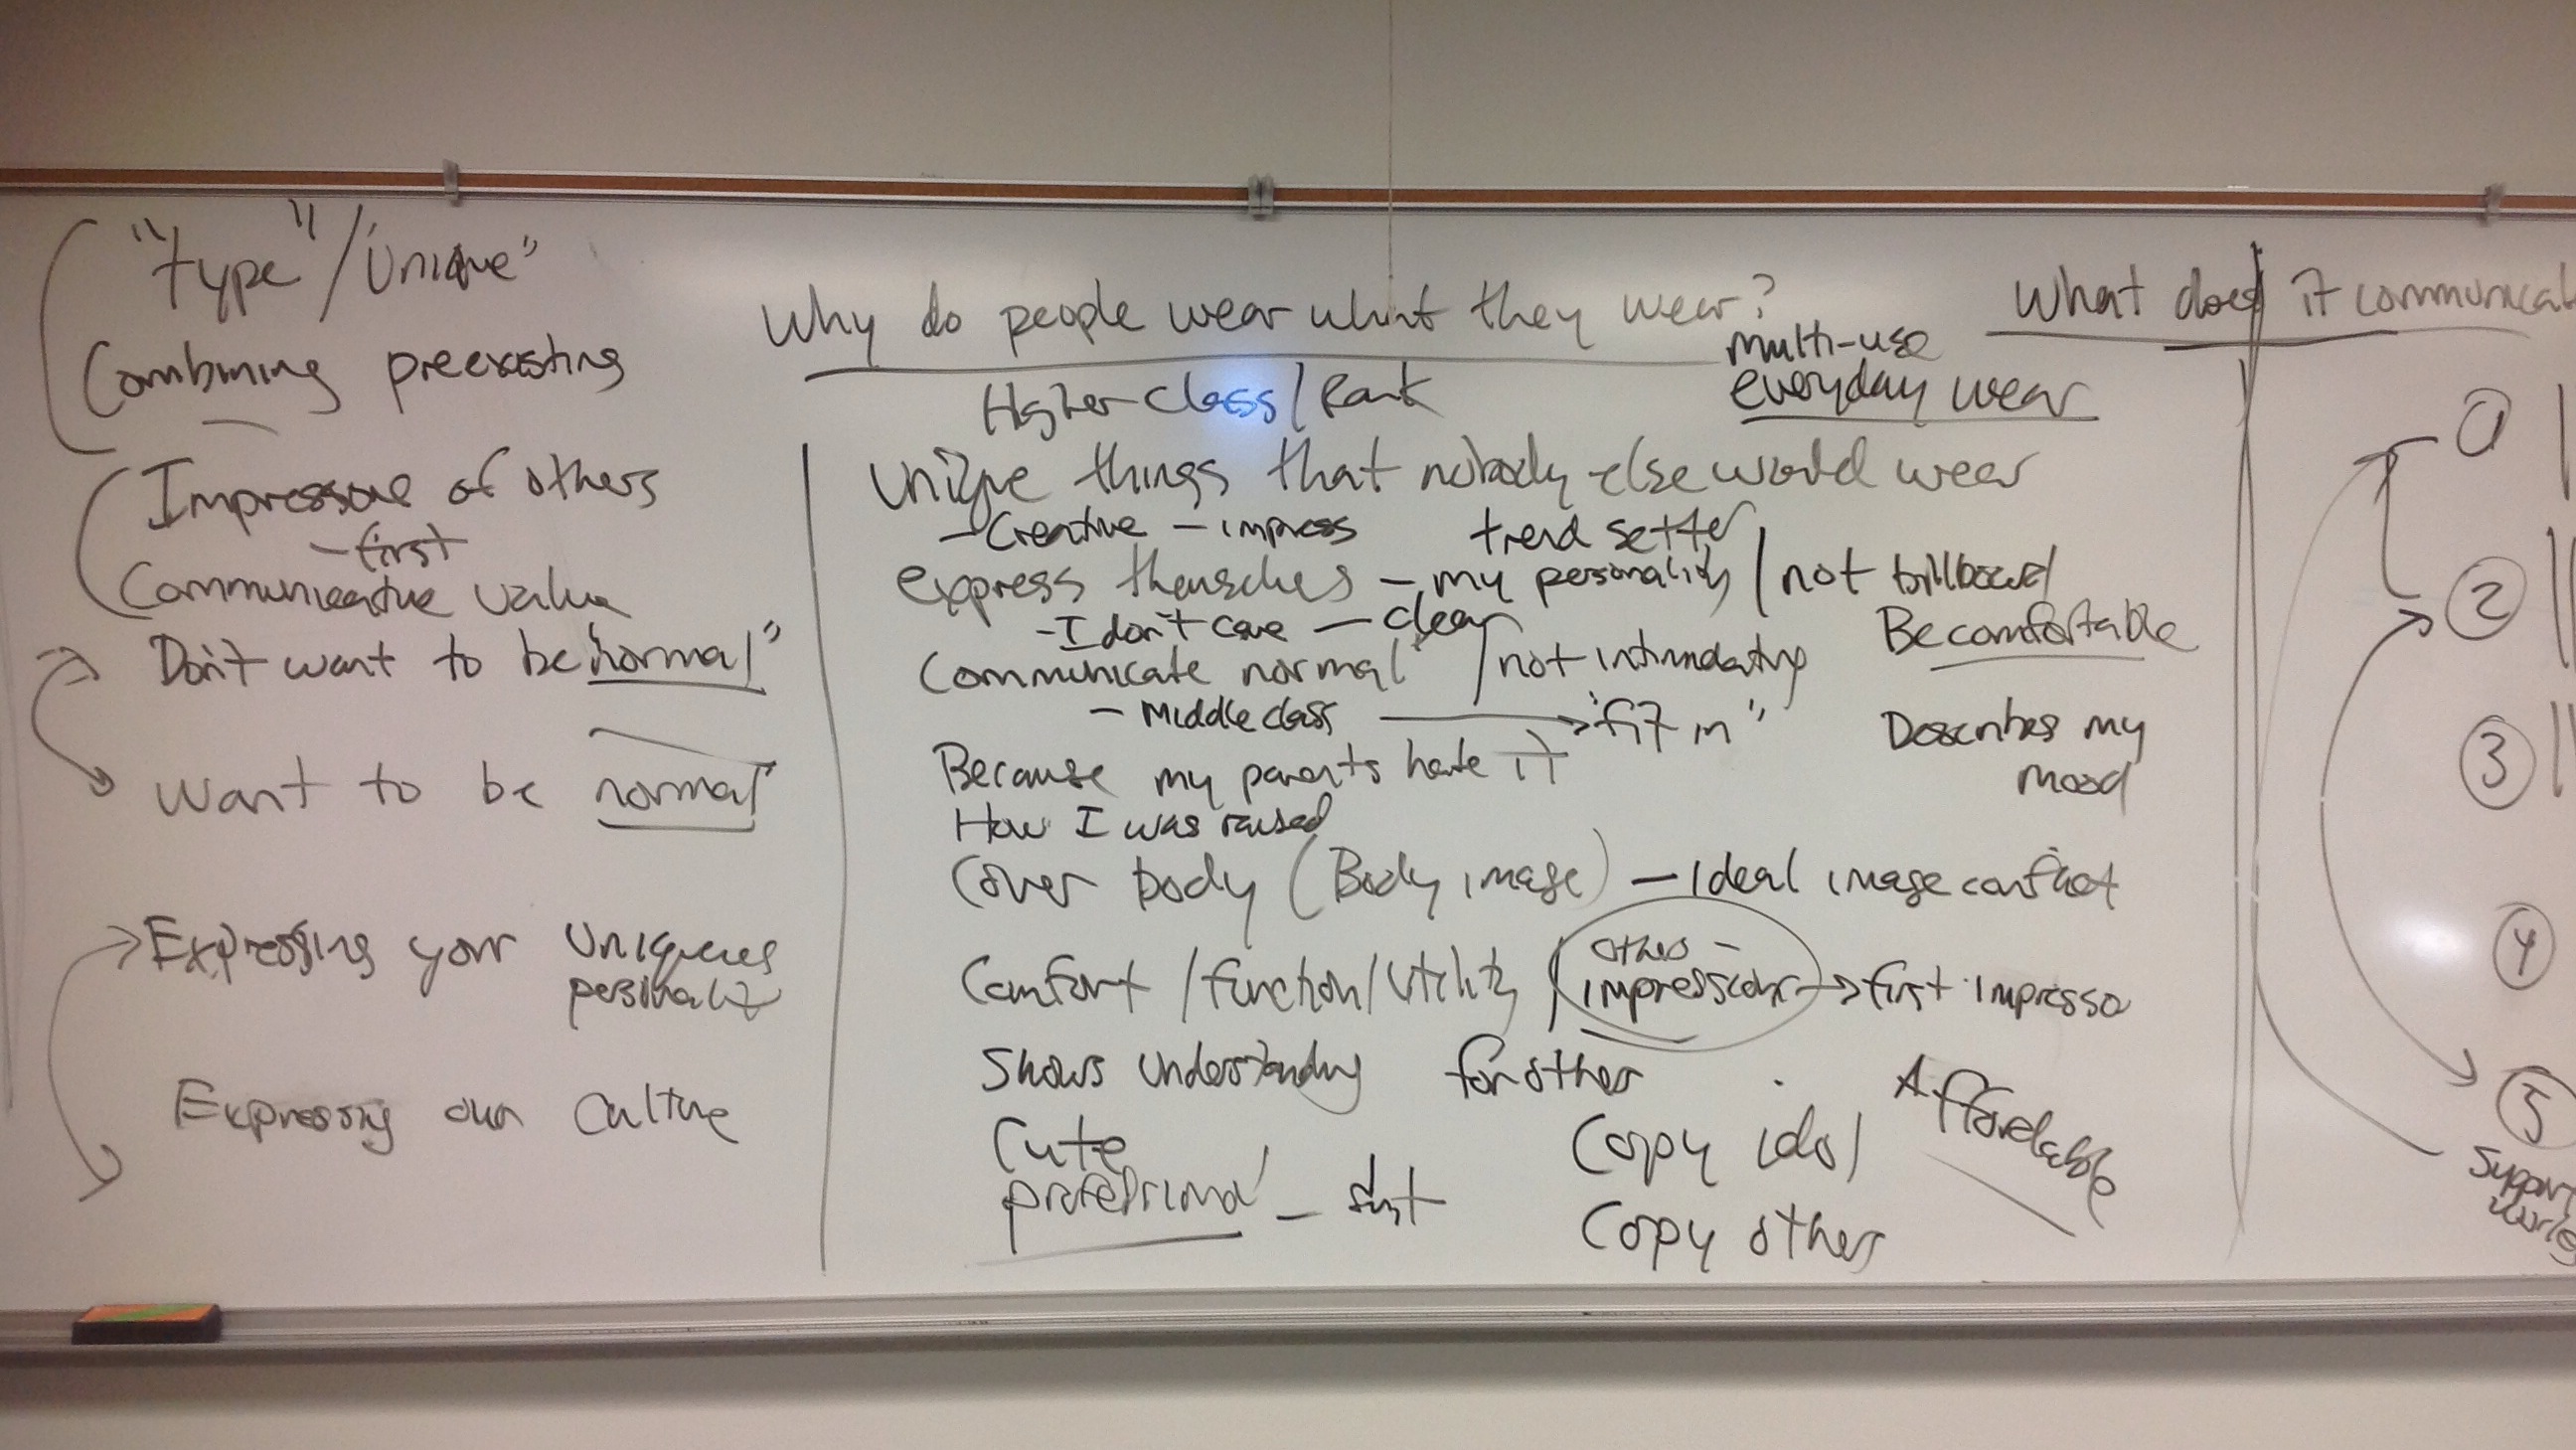 "type"/"Unique"
Combining preexisting
Impressions of others
- first
Communicative value
Don't want to be "normal"
Want to be "normal"
Expressing your Uniqueness
personality
Expressing our Culture
Why do people wear what they wear?
Higher class/Rank
multi-use
everyday wear
Unique things that nobody else would wear
- Creative - impress trend setter
express themselves - my personality / not billboard
- I don't care - clean
Be comfortable
Communicate "normal" / not intimidating
- Middle class → "fit in"
Describes my
mood
Because my parents hate it
How I was raised
Cover body (Body image) - Ideal image conflict
Comfort /function/utility /
others -
impressions → first impresso
Shows understanding for other
Cute
Copy idol
Affordable
professional -
Copy others
What does it communicat
1
2
3
4
5
Support